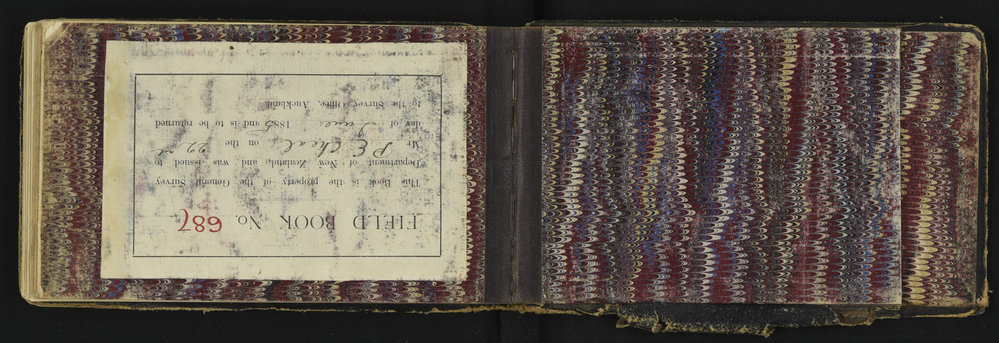 FIELD BOOK No. 687
This Book is the property of the General Survey
Department of New Zealand, and was issued to
Mr P E Cheal on the 22nd
day of June 1885 and is to be returned
to the Survey Office, Auckland.